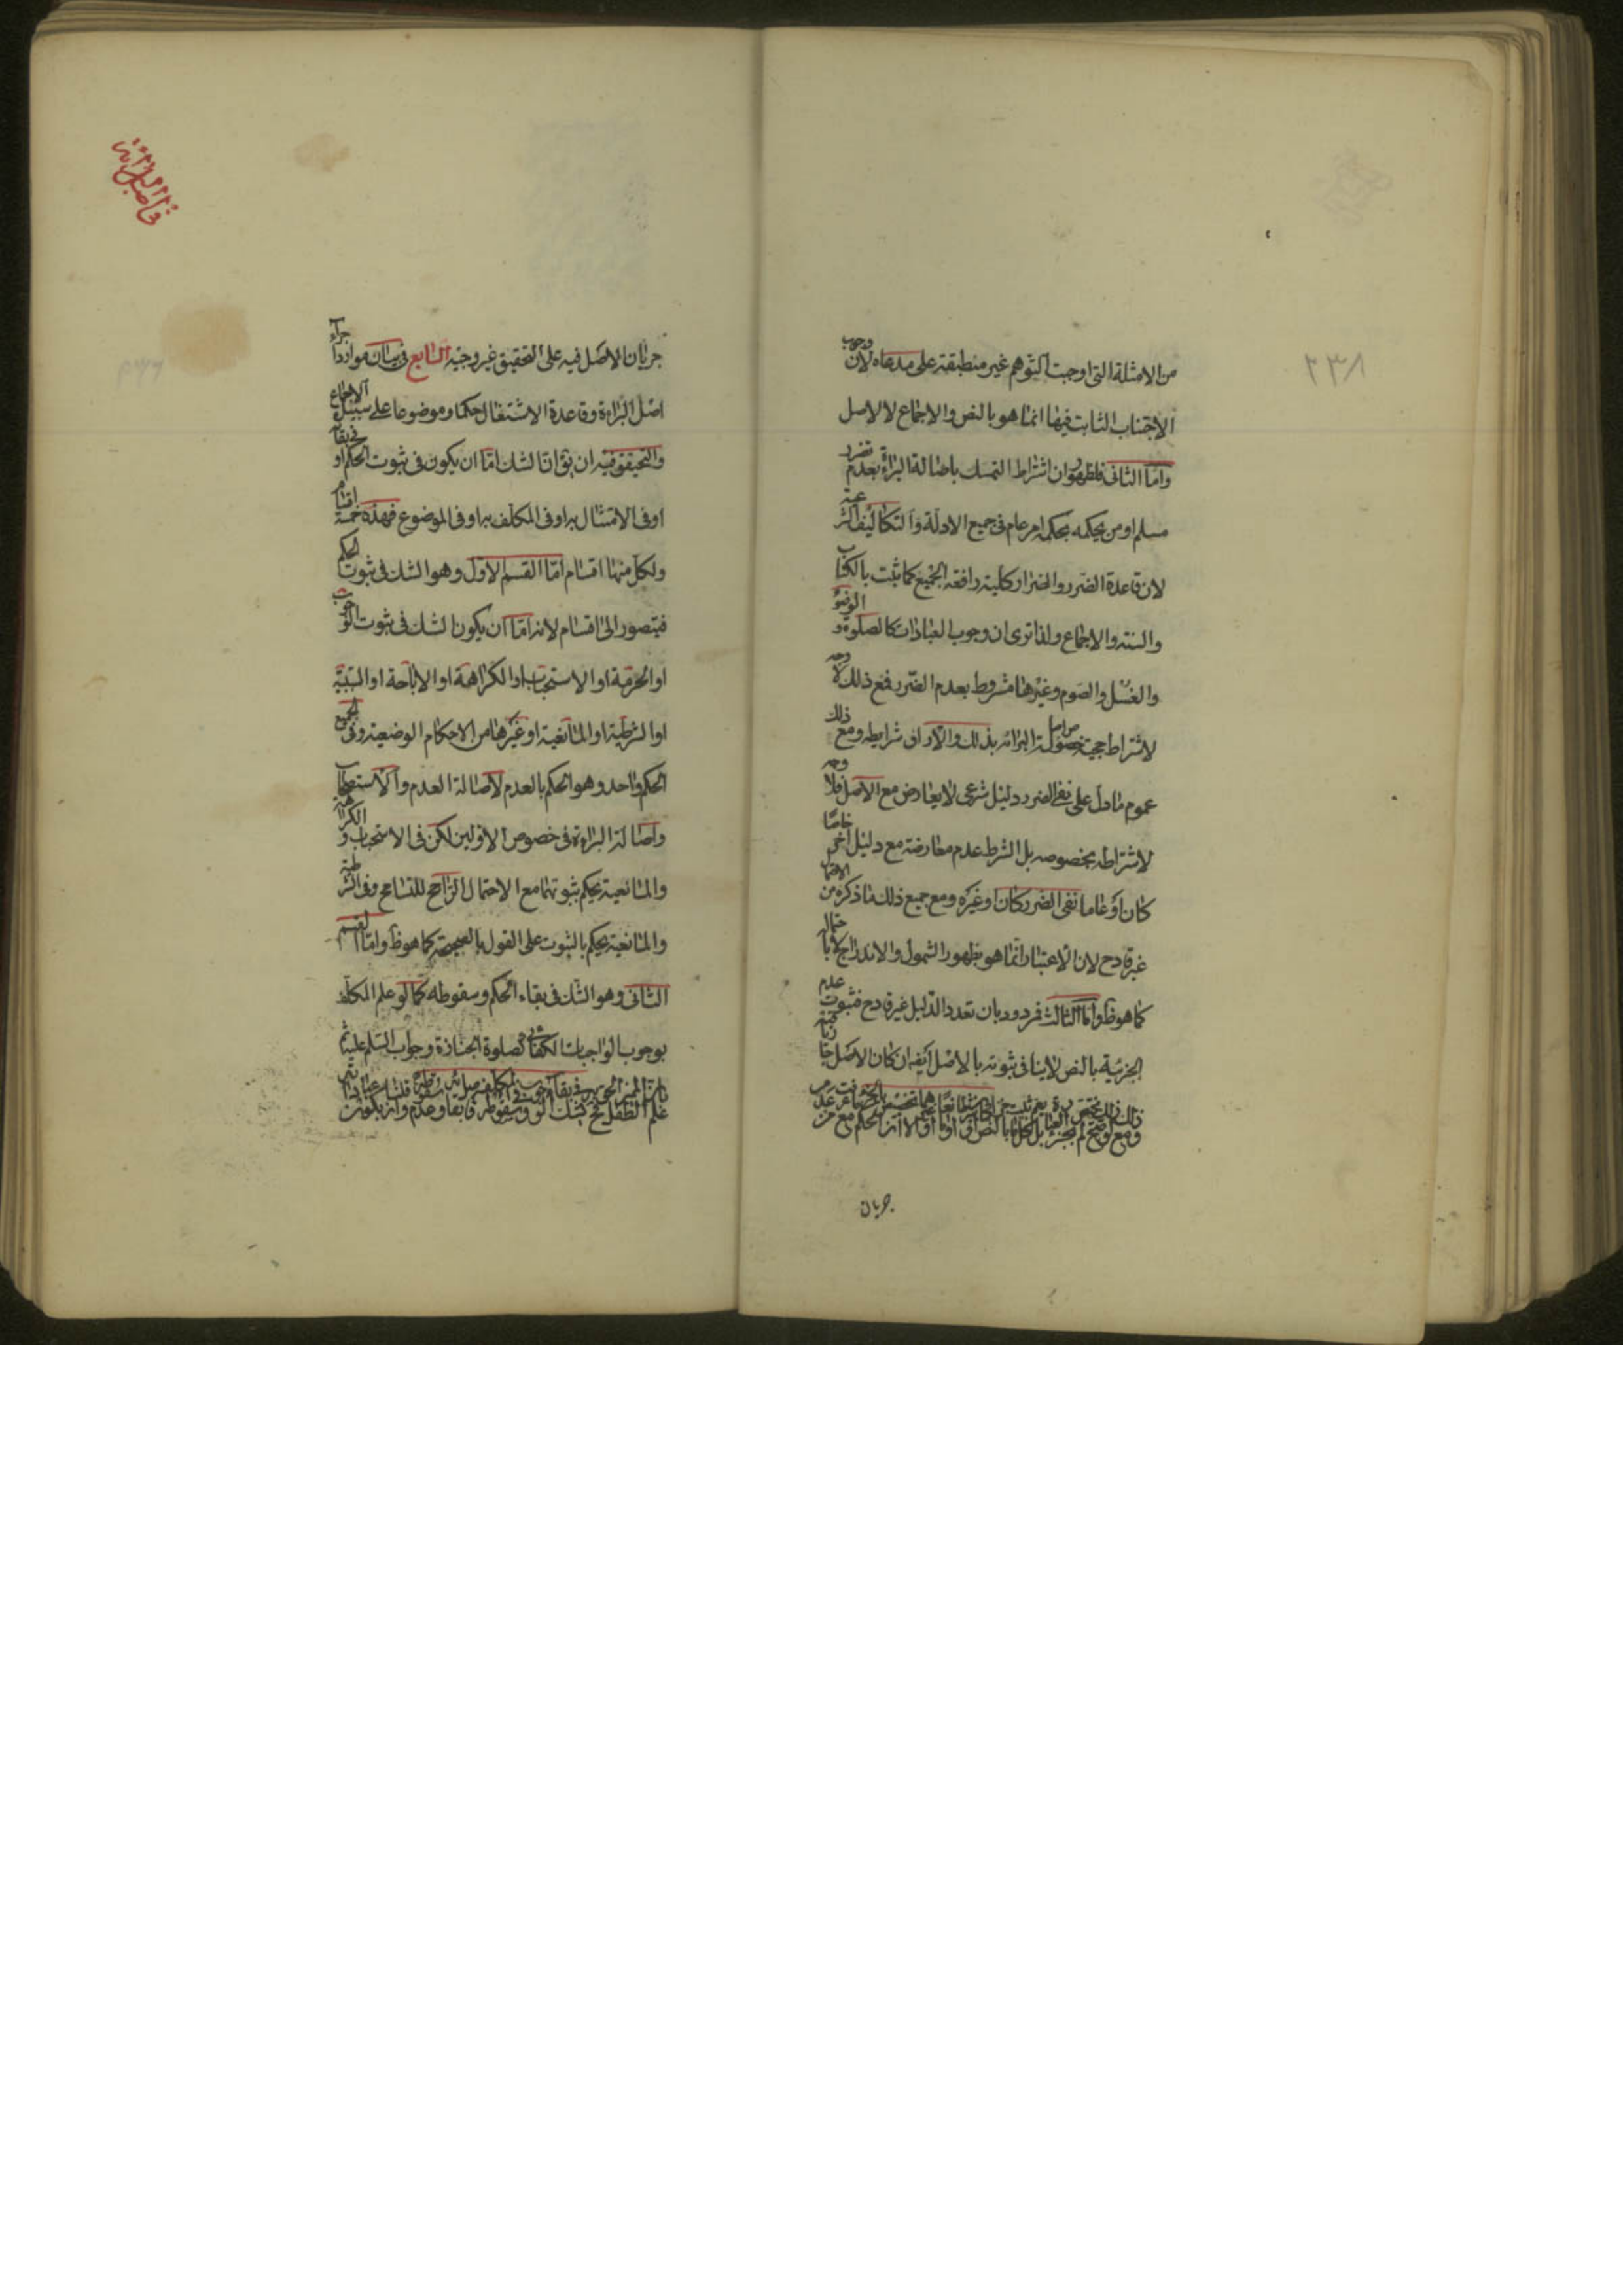 ٢٣٨
من الامثلة التى اوجبت اكثرهم غير منطبقة على مدعاه لان وجوب
الاجتناب الثابت فيها انما هو بالنص والاجماع لا الاصل
واما الثانى فلظهور ان اشتراط التمسك باصالة البراءة بعدم تضرر
مسلم او من بحكمه بحكمه امر عام فى جميع الادلة والتكاليف
لان قاعدة الضرر والضرار كلية رافعة الجميع كما ثبت بالكتاب
والسنة والاجماع ولذا ترى ان وجوب العبادات كالصلوة و الوضوء
والغسل والصوم وغيرها مشروط بعدم الضرر فمع ذلك لا وجه
لاشتراط حجية خصوص اصالة البرائة بذلك والاراق شرايطه ومع ذلك
عموم مادل على نفى الضرر دليل شرعى لا يعارض مع الاصل فلا وجه
لاشتراطه بخصوصه بل الشرط عدم معارضة مع دليل اخر خاصا
كان او عاما نفى الضرر كان او غيره ومع جميع ذلك ما ذكره من الاحتمال
غير قادح لان الاعتبار انما هو بظهور الشمول والاندراج لا باحتمال
كما هو ظ واما الثالث فمردود بان تعدد الدليل غير قادح فثبوت عدم
الجزئية بالنص لا ينافى ثبوته بالاصل ايضه ان كان الاصل
جريان
فى اصل البرائة
جريان الاصل فيه على التحقيق غير وجيه السابع فى بيان موارد اجراء
اصل البراءة وقاعدة الاشتغال حكما وموضوعا على سبيل الاجماع
والتحقيق فيه ان يق ان الشك اما ان يكون فى ثبوت الحكم او فى بقائه
او فى الامتثال به او فى المكلف به او فى الموضوع فهذه خمسة اقسام
ولكل منها اقسام اما القسم الاول وهو الشك فى ثبوت الحكم
فيتصور الى اقسام لانه اما ان يكون الشك فى ثبوت الوجوب
او الحرمة او الاستحباب او الكراهة او الاباحة او السببية
او الشرطية او المانعية او غيرها من الاحكام الوضعية وفى الجميع
الحكم واحد وهو الحكم بالعدم لاصالة العدم والاستصحاب
واصالة البراءة فى خصوص الاولين لكن فى الاستحباب و الكراهة
والمانعية يحكم بثبوتها مع الاحتمال الراجح للتسامح وفى الشرطية
والمانعية يحكم بالثبوت على القول بالصحيحة كما هو ظ واما القسم
الثانى وهو الشك فى بقاء الحكم وسقوطه كما لو علم المكلف
بوجوب الواجبات الكفائى كصلوة الجنازة وجواب السلم عليه ثم